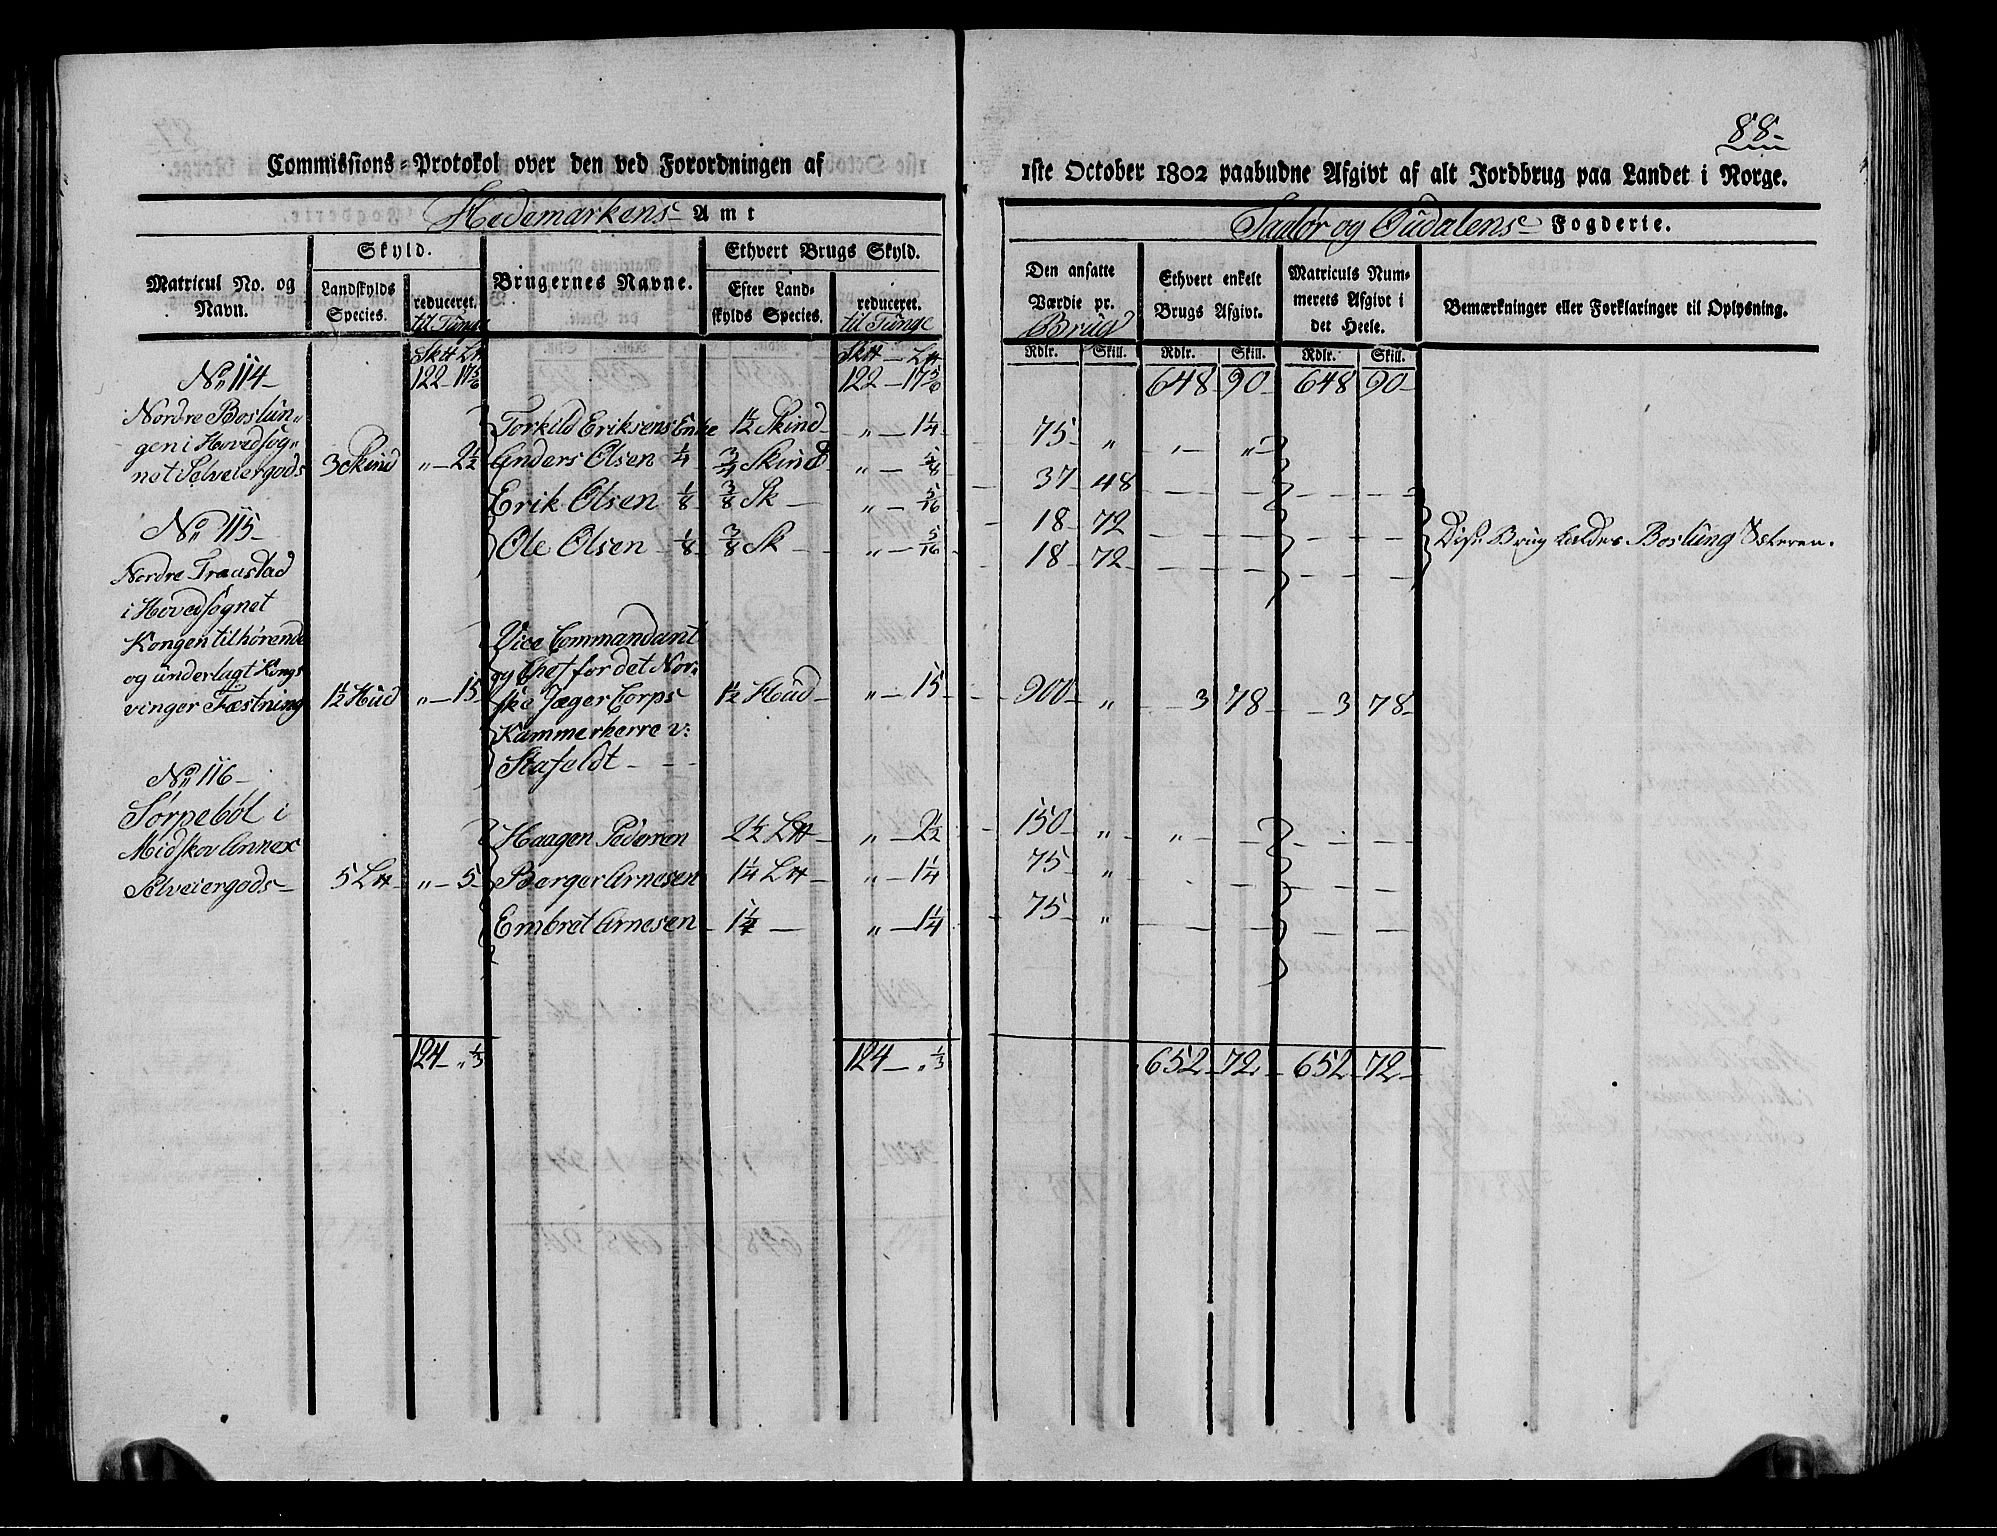 88.
Commissions-Protokol over den ved Forordningen af
1ste October 1802 paabudne Afgivt af alt Jordbrug paa Landet i Norge.
Hedemarkens Amt
Fogderie.
Matricul No. og Navn.
Skyld.
Landskylds Species.
reduceret. til Tunge
Brugernes Navne.
Ethvert Brugs Skyld.
Efter Landskylds Species.
reduceret. til Tunge
Den ansatte Værdie pr. Brug
Ethvert enkelt Brugs Afgivt.
Matriculs Nummerets Afgivt i det Heele.
Bemærkninger eller Forklaringer til Oplysning.
Rdlr. Skill. Rdlr. Skill. Rdlr. Skill.
122 — 17 5/6 122 — 17 5/6 648 90 648 90
No 114
Nordre Boslun-
gen i Hovedsog-
net Selveiergods 3 Skind „ — 2 1/2
Torkild Eriksens Enke 1 1/2 Skind „ — 1 1/4 75 „
Anders Olsen 1/4 3/4 Skind „ — 5/8 37 48
Erik Olsen 1/8 3/8 Sk „ — 5/16 18 72
Ole Olsen 1/8 3/8 Sk „ — 5/16 18 72
Brug kaldes Boslung Østeren.
No 115
Nordre Traustad
i Hovedsognet
Kongen tilhørende
og underlagt Kongs
vinger Fæstning 1 1/2 Hud „ — 15
Vice Commandant
og Chef for det Nor-
ske Jæger Corps 1 1/2 Hud „ — 15 900 „ 3 78 3 78
Kammerherre v:
Stafeldt
No 116
Sørpebøl i
Midskov Annex
Selveiergods 5 L℔ „ — 5
Haagen Pedersen 2 1/2 L℔ „ — 2 1/2 150 „
Berger Arnesen 1 1/4 L℔ „ — 1 1/4 75 „
Embret Arnesen 1 1/4 „ — 1 1/4 75 „
124 „ 1/3 124 „ 1/3 652 72 652 72